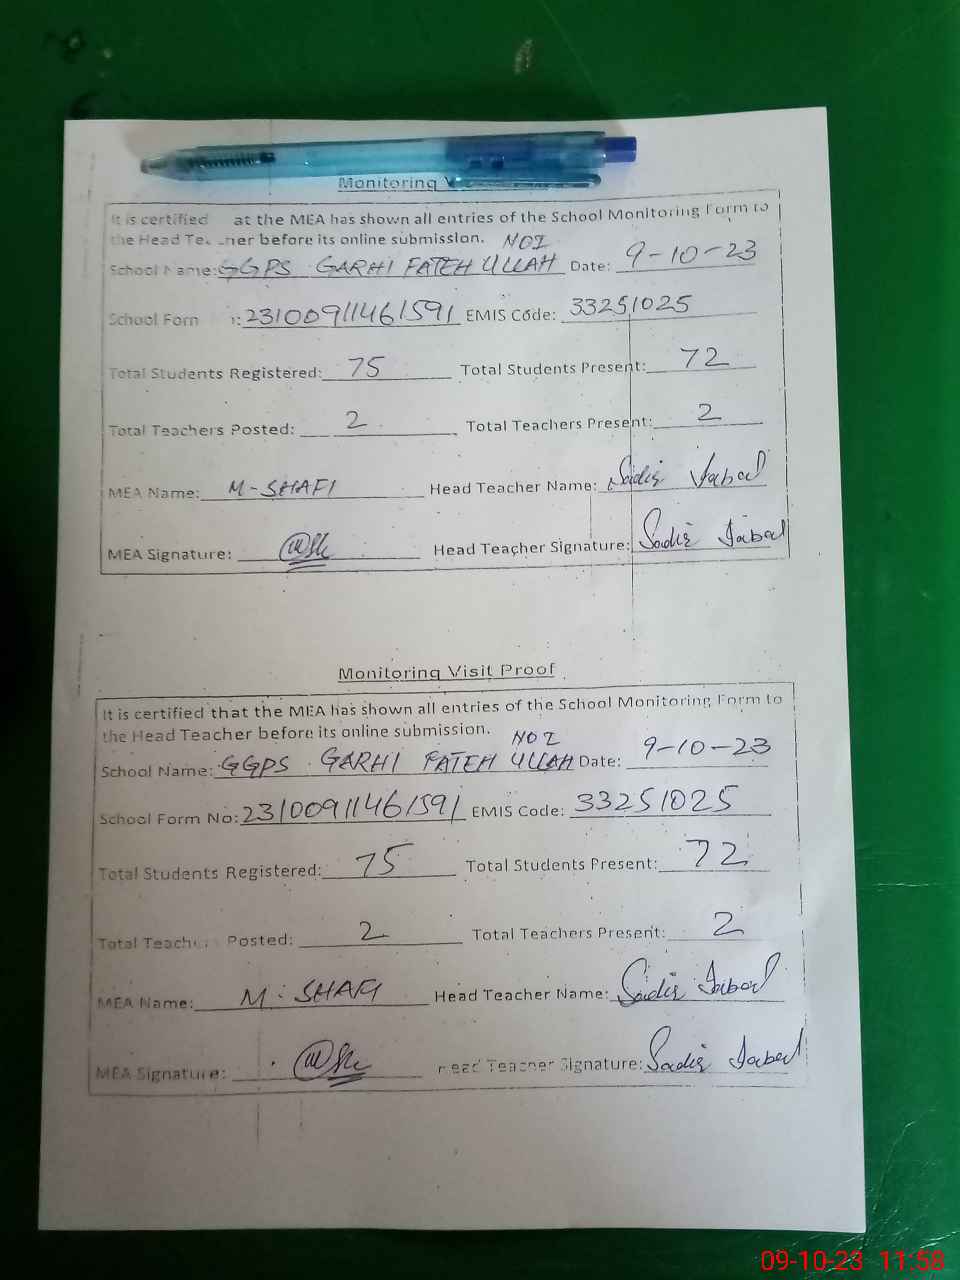 Monitoring
It is certified at the MEA has shown all entries of the School Monitoring Form to
the Head Teacher before its online submission. NO I
School Name: GGPS GARHI FATEH ULLAH Date: 9-10-23
School Form : 23100911461591 EMIS Code: 33251025
Total Students Registered: 75 Total Students Present: 72
Total Teachers Posted: 2 Total Teachers Present: 2
MEA Name: M-SHAFI Head Teacher Name:
MEA Signature: Head Teacher Signature:
Monitoring Visit Proof
It is certified that the MEA has shown all entries of the School Monitoring Form to
the Head Teacher before its online submission. NO I
School Name: GGPS GARHI FATEH ULLAH Date: 9-10-23
School Form No: 23100911461591 EMIS Code: 33251025
Total Students Registered: 75 Total Students Present: 72
Total Teachers Posted: 2 Total Teachers Present: 2
MEA Name: M. SHAFI Head Teacher Name:
MEA Signature: Head Teacher Signature:
09-10-23 11:58